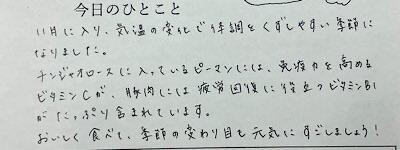 今日のひとこと
11月に入り、気温の変化で体調をくずしやすい季節に
なりました。
チンジャオロースに入っているピーマンには、免疫力を高める
ビタミンCが、豚肉には疲労回復に役立つビタミンB1
がたっぷり含まれています。
おいしく食べて、季節の変わり目も元気にすごしましょう!